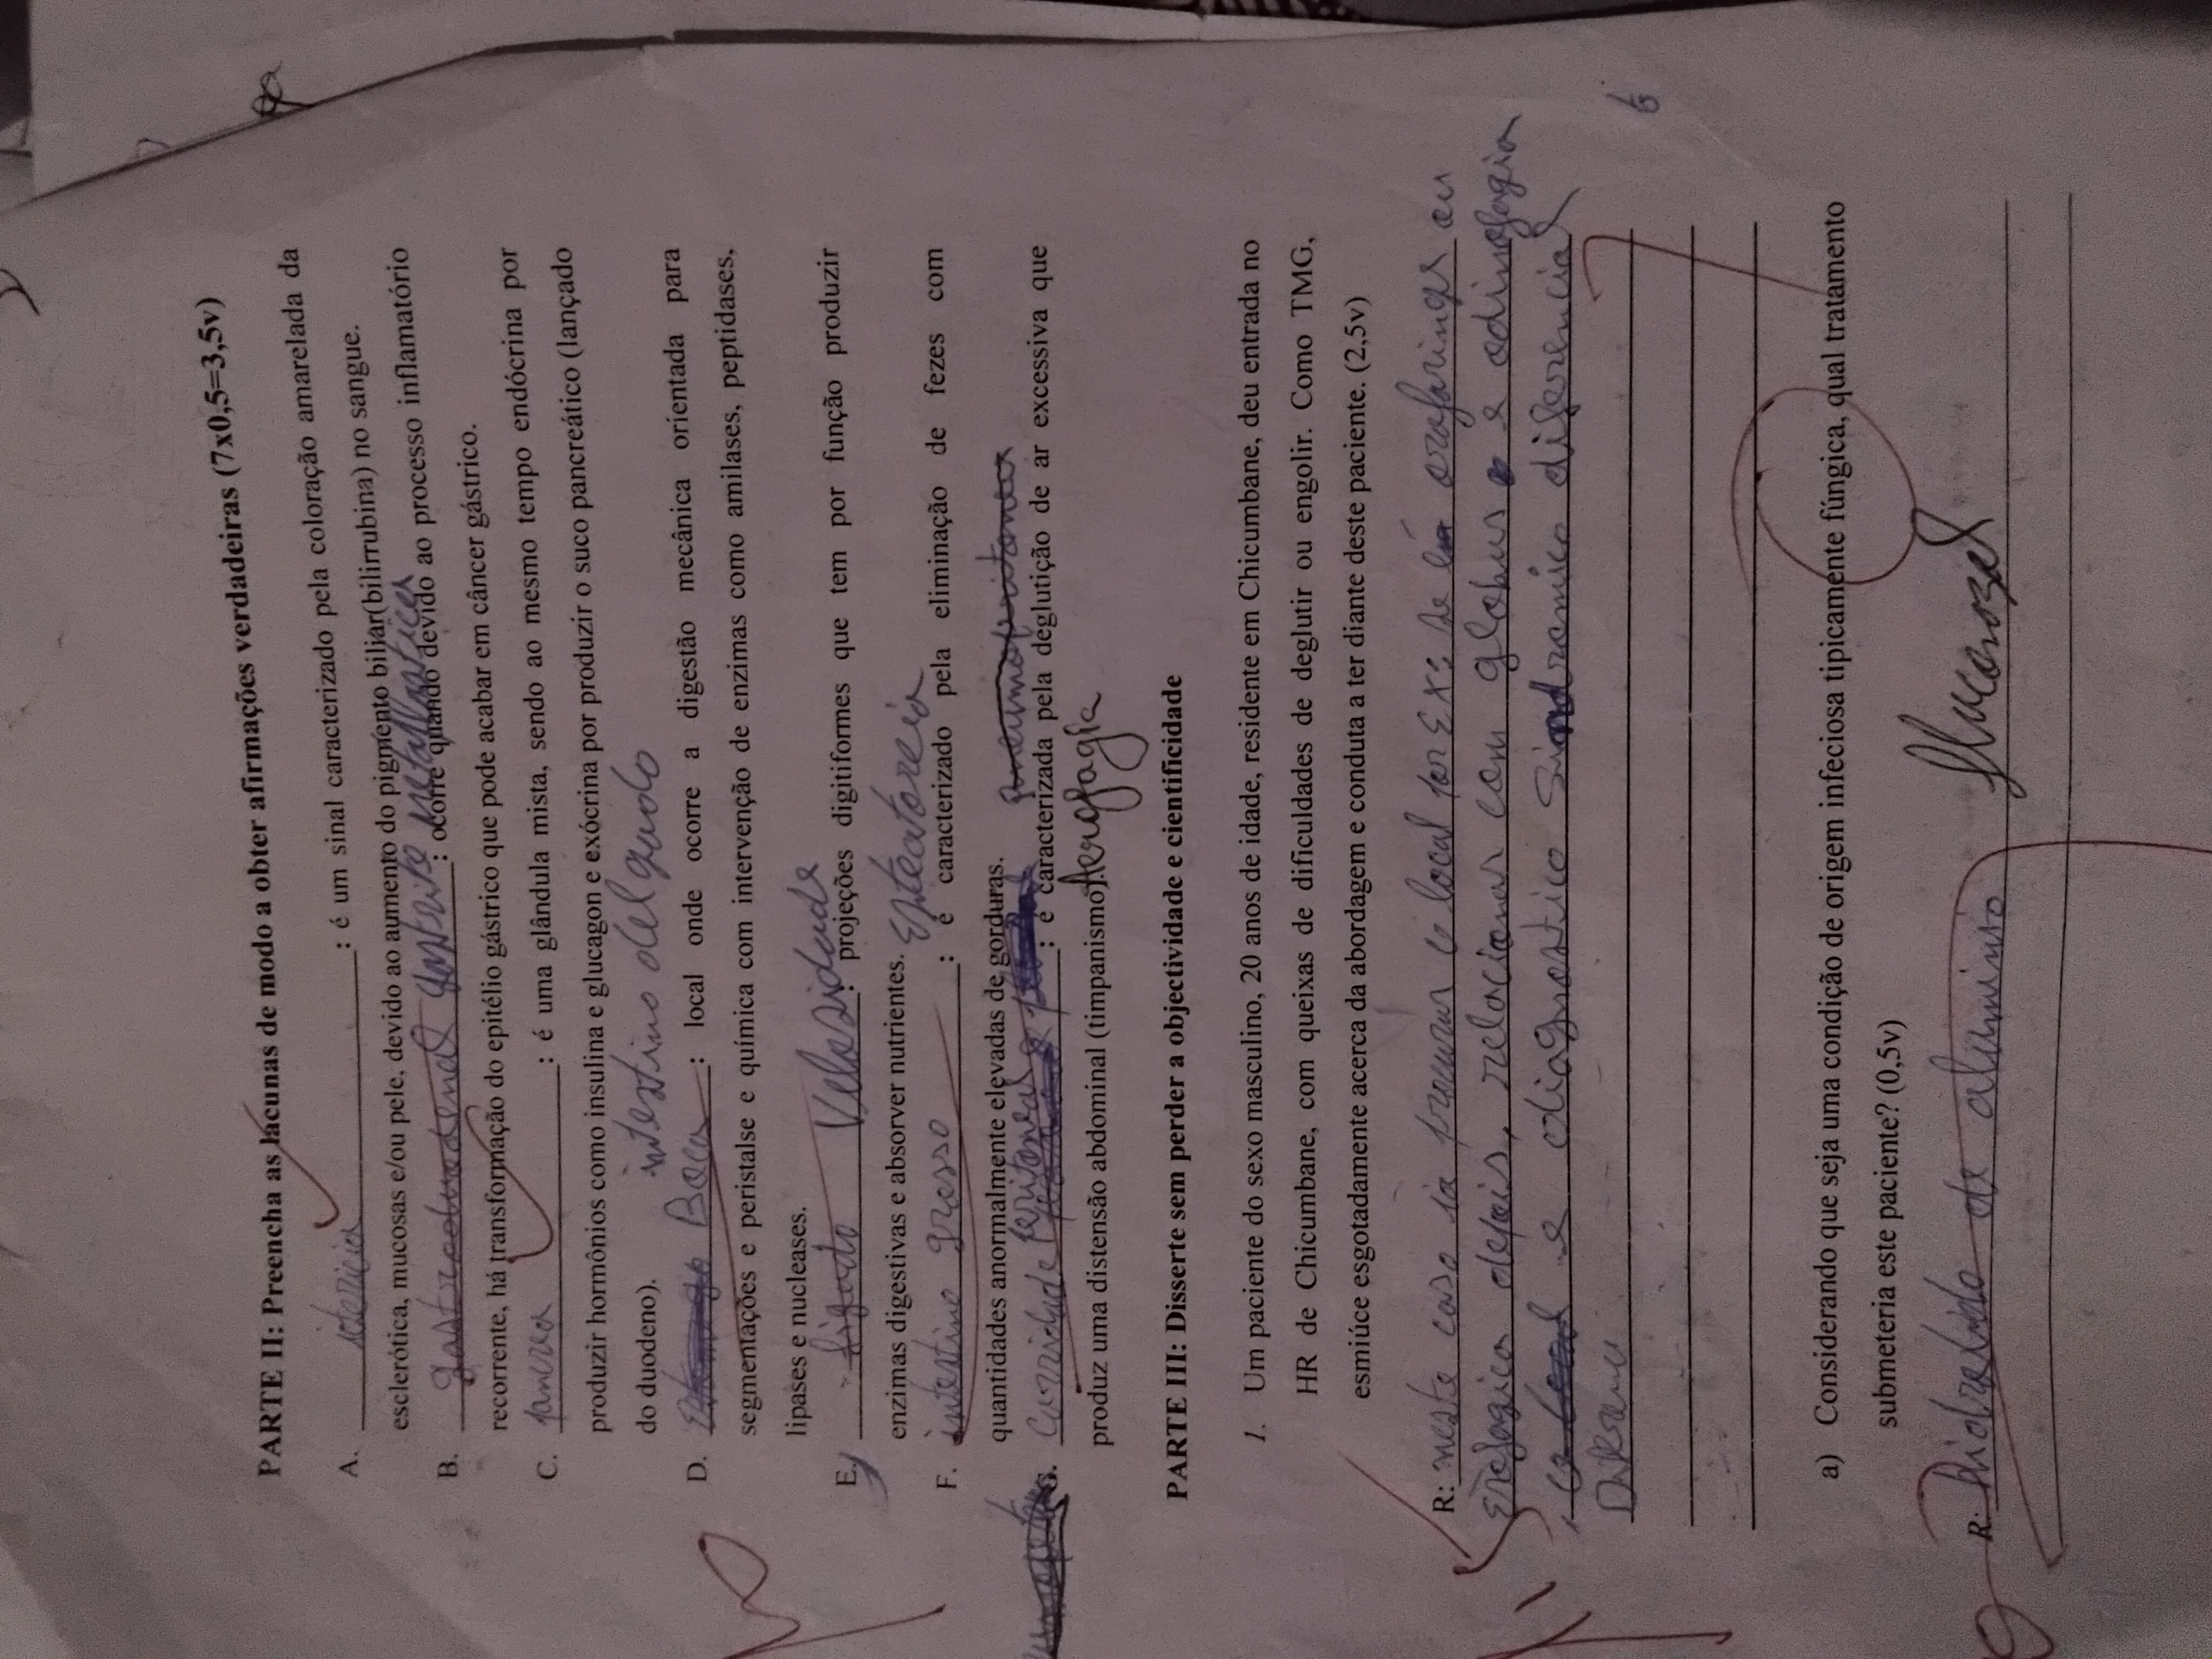 PARTE II: Preencha as lacunas de modo a obter afirmações verdadeiras (7x0,5=3,5v)
A. ictericia : é um sinal caracterizado pela coloração amarelada da
esclerótica, mucosas e/ou pele, devido ao aumento do pigmento biliar(bilirrubina) no sangue.
B. gastroduodenal gastrite metaplastica : ocorre quando devido ao processo inflamatório
recorrente, há transformação do epitélio gástrico que pode acabar em câncer gástrico.
C. pancrea : é uma glândula mista, sendo ao mesmo tempo endócrina por
produzir hormônios como insulina e glucagon e exócrina por produzir o suco pancreático (lançado
do duodeno). intestino delgado
D. Estomago Boca : local onde ocorre a digestão mecânica orientada para
segmentações e peristalse e química com intervenção de enzimas como amilases, peptidases,
lipases e nucleases.
E. figado Velosidade : projeções digitiformes que tem por função produzir
enzimas digestivas e absorver nutrientes. Esteatoreia
F. intestino grosso : é caracterizado pela eliminação de fezes com
quantidades anormalmente elevadas de gorduras. pneumoperitoneu
G. Cavidade peritoneal : é caracterizada pela deglutição de ar excessiva que
produz uma distensão abdominal (timpanismo). Aerofagia
PARTE III: Disserte sem perder a objectividade e cientificidade
1. Um paciente do sexo masculino, 20 anos de idade, residente em Chicumbane, deu entrada no
HR de Chicumbane, com queixas de dificuldades de deglutir ou engolir. Como TMG,
esmiúce esgotadamente acerca da abordagem e conduta a ter diante deste paciente. (2,5v)
R: neste caso ia procurar o local por Ex: se é orofaringe ou
Esofagica depois, relacionar com globus e odinofagia
e diagnostico Sindromico diferencial
Diferenci
6
a) Considerando que seja uma condição de origem infeciosa tipicamente fúngica, qual tratamento
submeteria este paciente? (0,5v)
R: Hidroxido de aluminio fluconozol